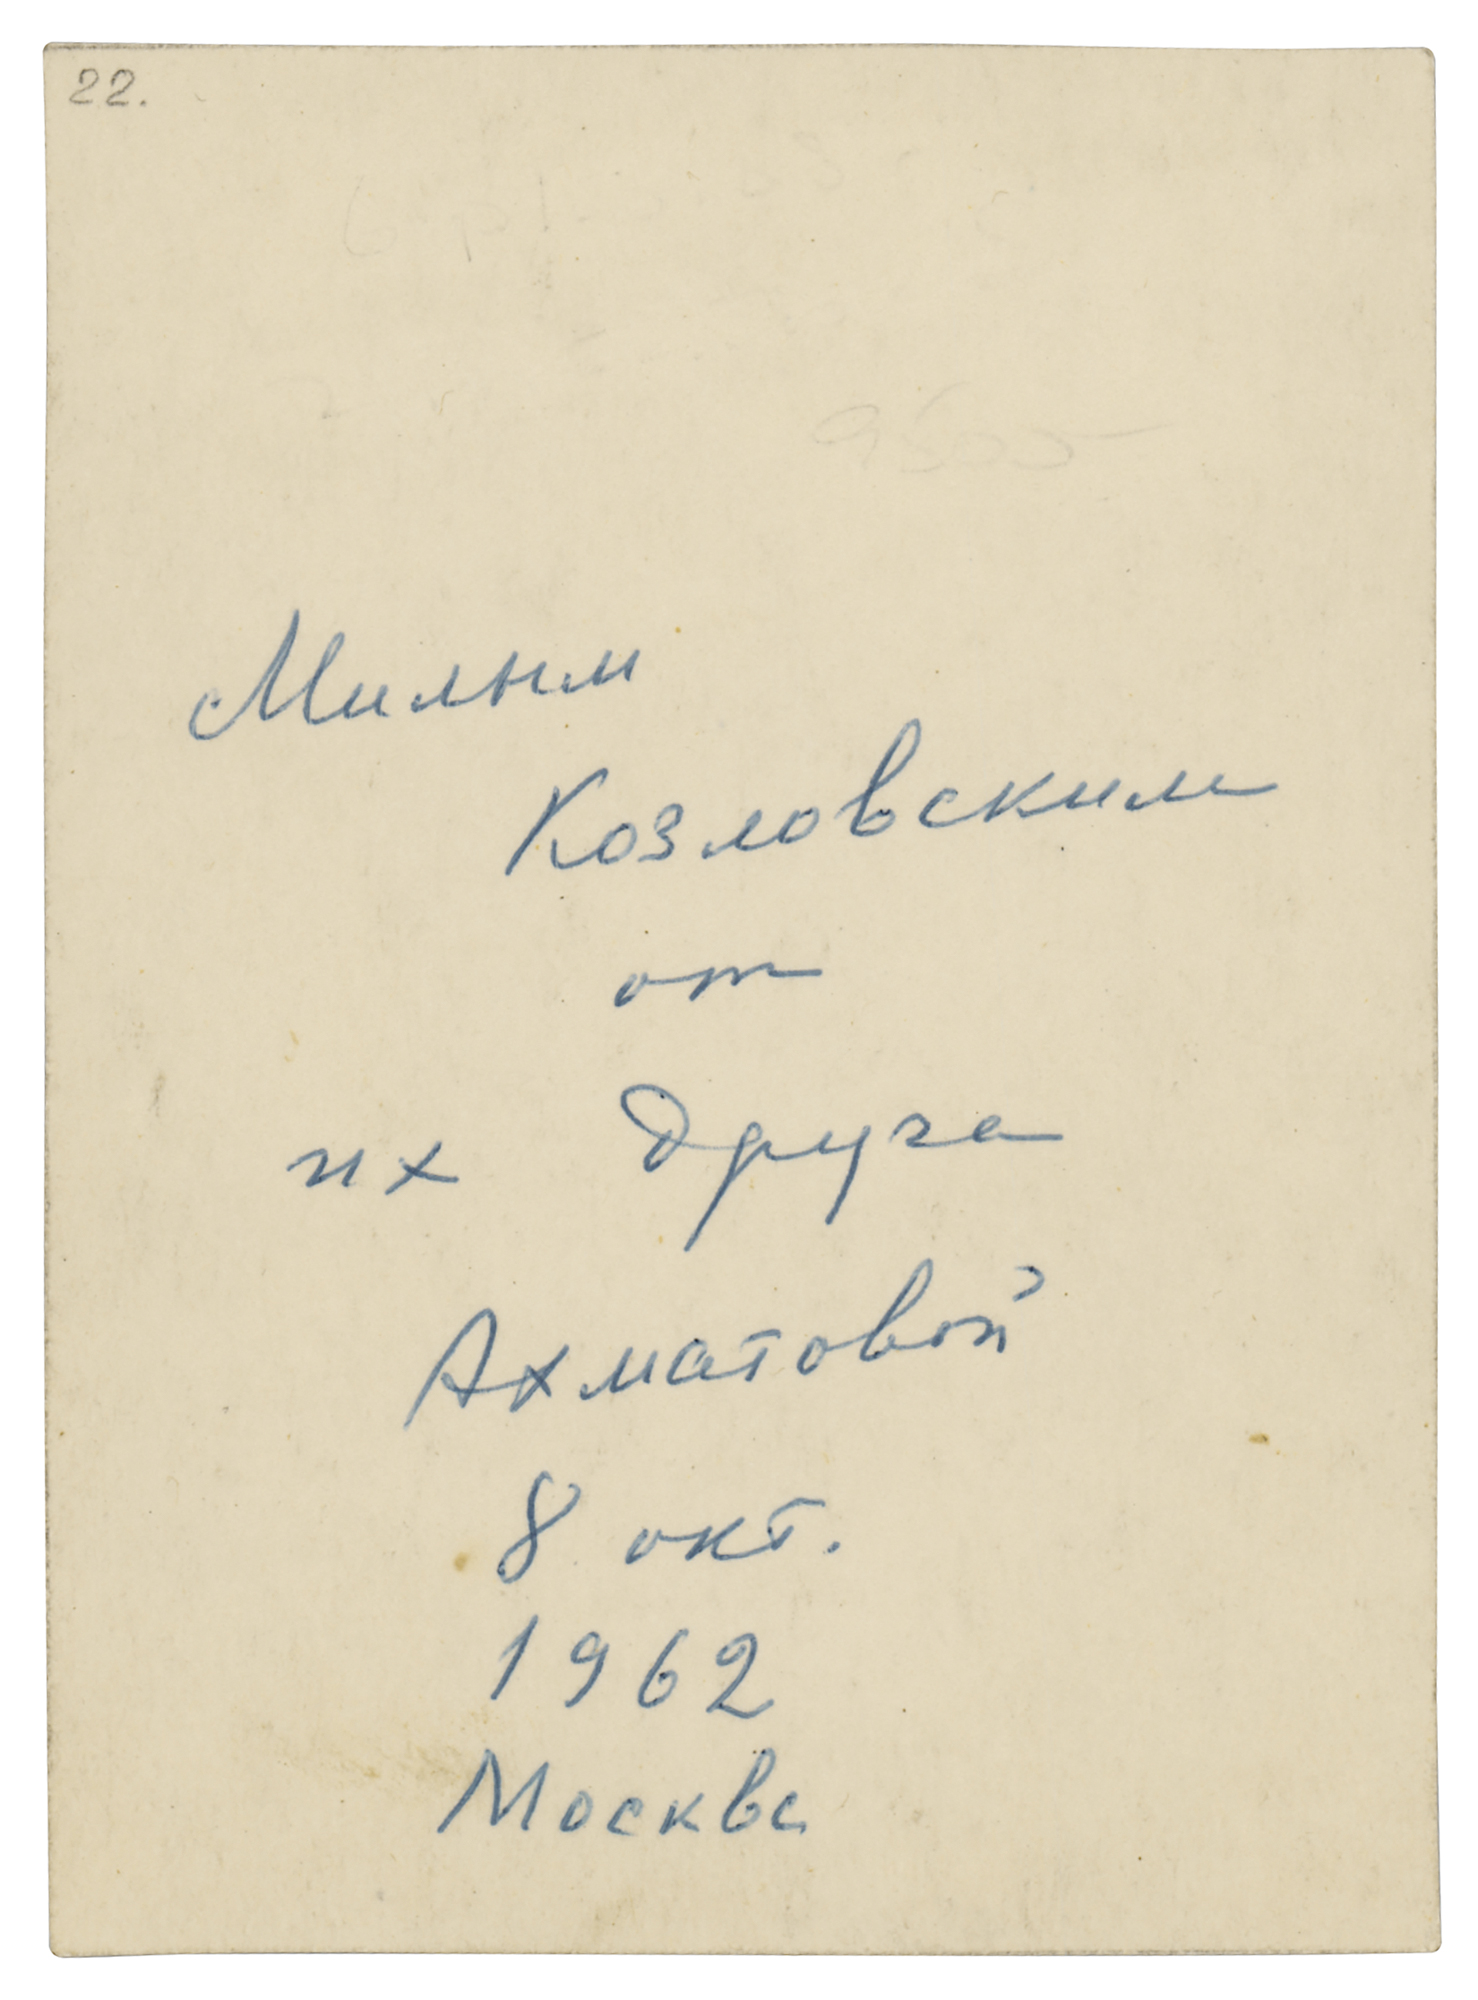 22.
Милым
Козловским
от
их друга
Ахматовой
8 окт.
1962
Москва